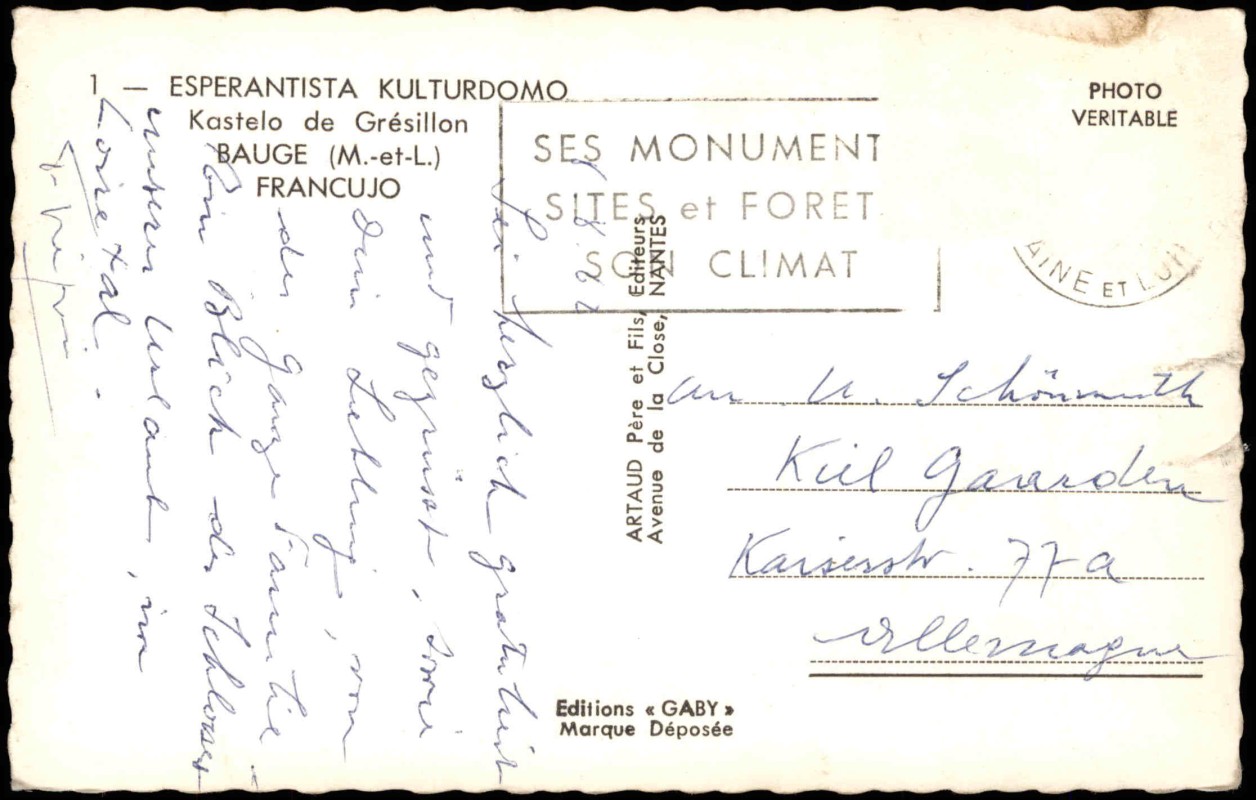 1 — ESPERANTISTA KULTURDOMO
Kastelo de Grésillon
BAUGE (M.-et-L.)
FRANCUJO
PHOTO
VERITABLE
SES MONUMENT
SITES et FORET
SON CLIMAT
AINE ET LOI
ARTAUD Père et Fils, Editeurs
Avenue de la Close, NANTES
Sei herzlich gratuliert
und gegrüsst, sowie
Dein Liebling, von
der ganze Familie -
Blick des Schlosses
unseres Urlaub, im
Loiretal.
an U. Schönmuth
Kiel Gaarden
Kaiserstr. 77 a
Allemagne
Editions « GABY »
Marque Déposée